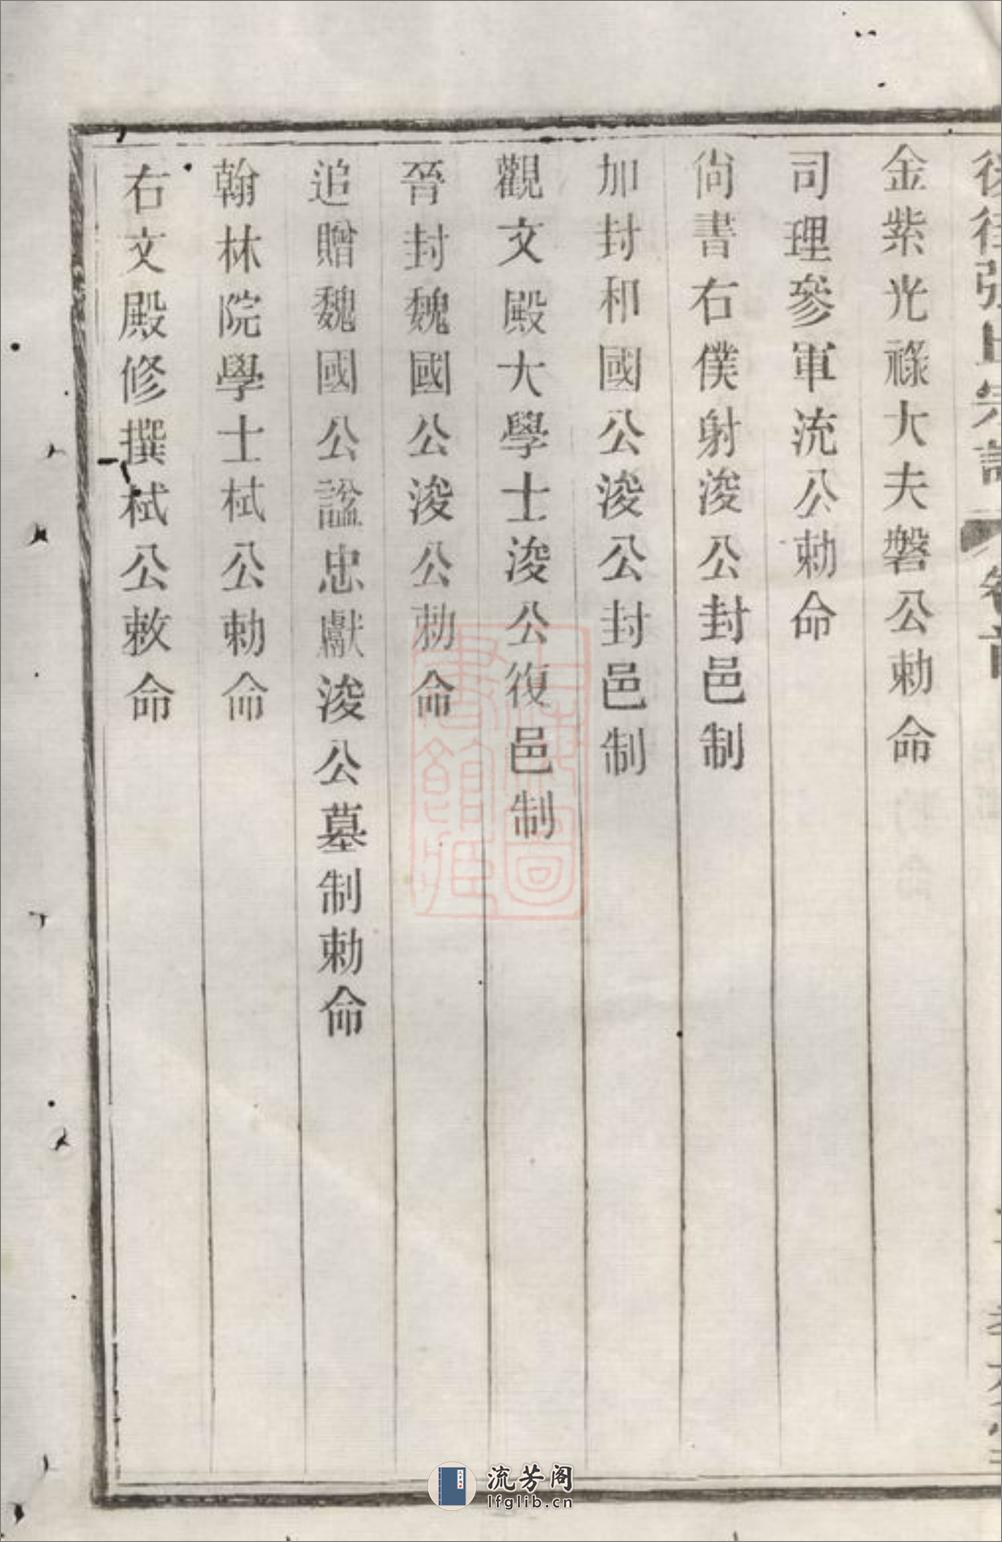 張氏宗譜 卷首
金紫光祿大夫磐公勅命
司理參軍流公勅命
尙書右僕射浚公封邑制
加封和國公浚公封邑制
觀文殿大學士浚公復邑制
晉封魏國公浚公勅命
追贈魏國公謚忠獻浚公墓制勅命
翰林院學士栻公勅命
右文殿修撰栻公敕命
上海圖書館藏
流芳阁
lfglib.cn